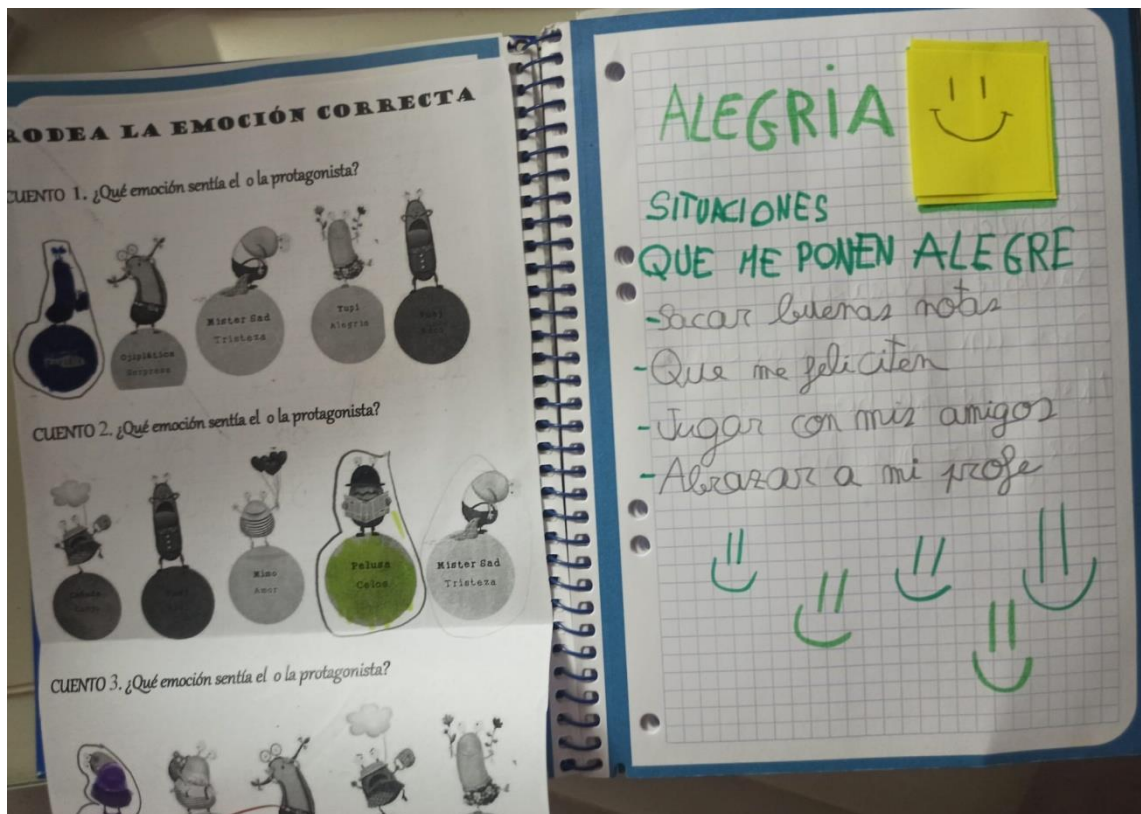 RODEA LA EMOCIÓN CORRECTA
CUENTO 1. ¿Qué emoción sentía el o la protagonista?
Ojiplática
Sorpresa
Mister Sad
Tristeza
Yupi
Alegría
CUENTO 2. ¿Qué emoción sentía el o la protagonista?
Mimo
Amor
Pelusa
Celos
Mister Sad
Tristeza
CUENTO 3. ¿Qué emoción sentía el o la protagonista?
ALEGRÍA
SITUACIONES
QUE ME PONEN ALEGRE
-Sacar buenas notas
-Que me feliciten
-Jugar con mis amigos
-Abrazar a mi profe